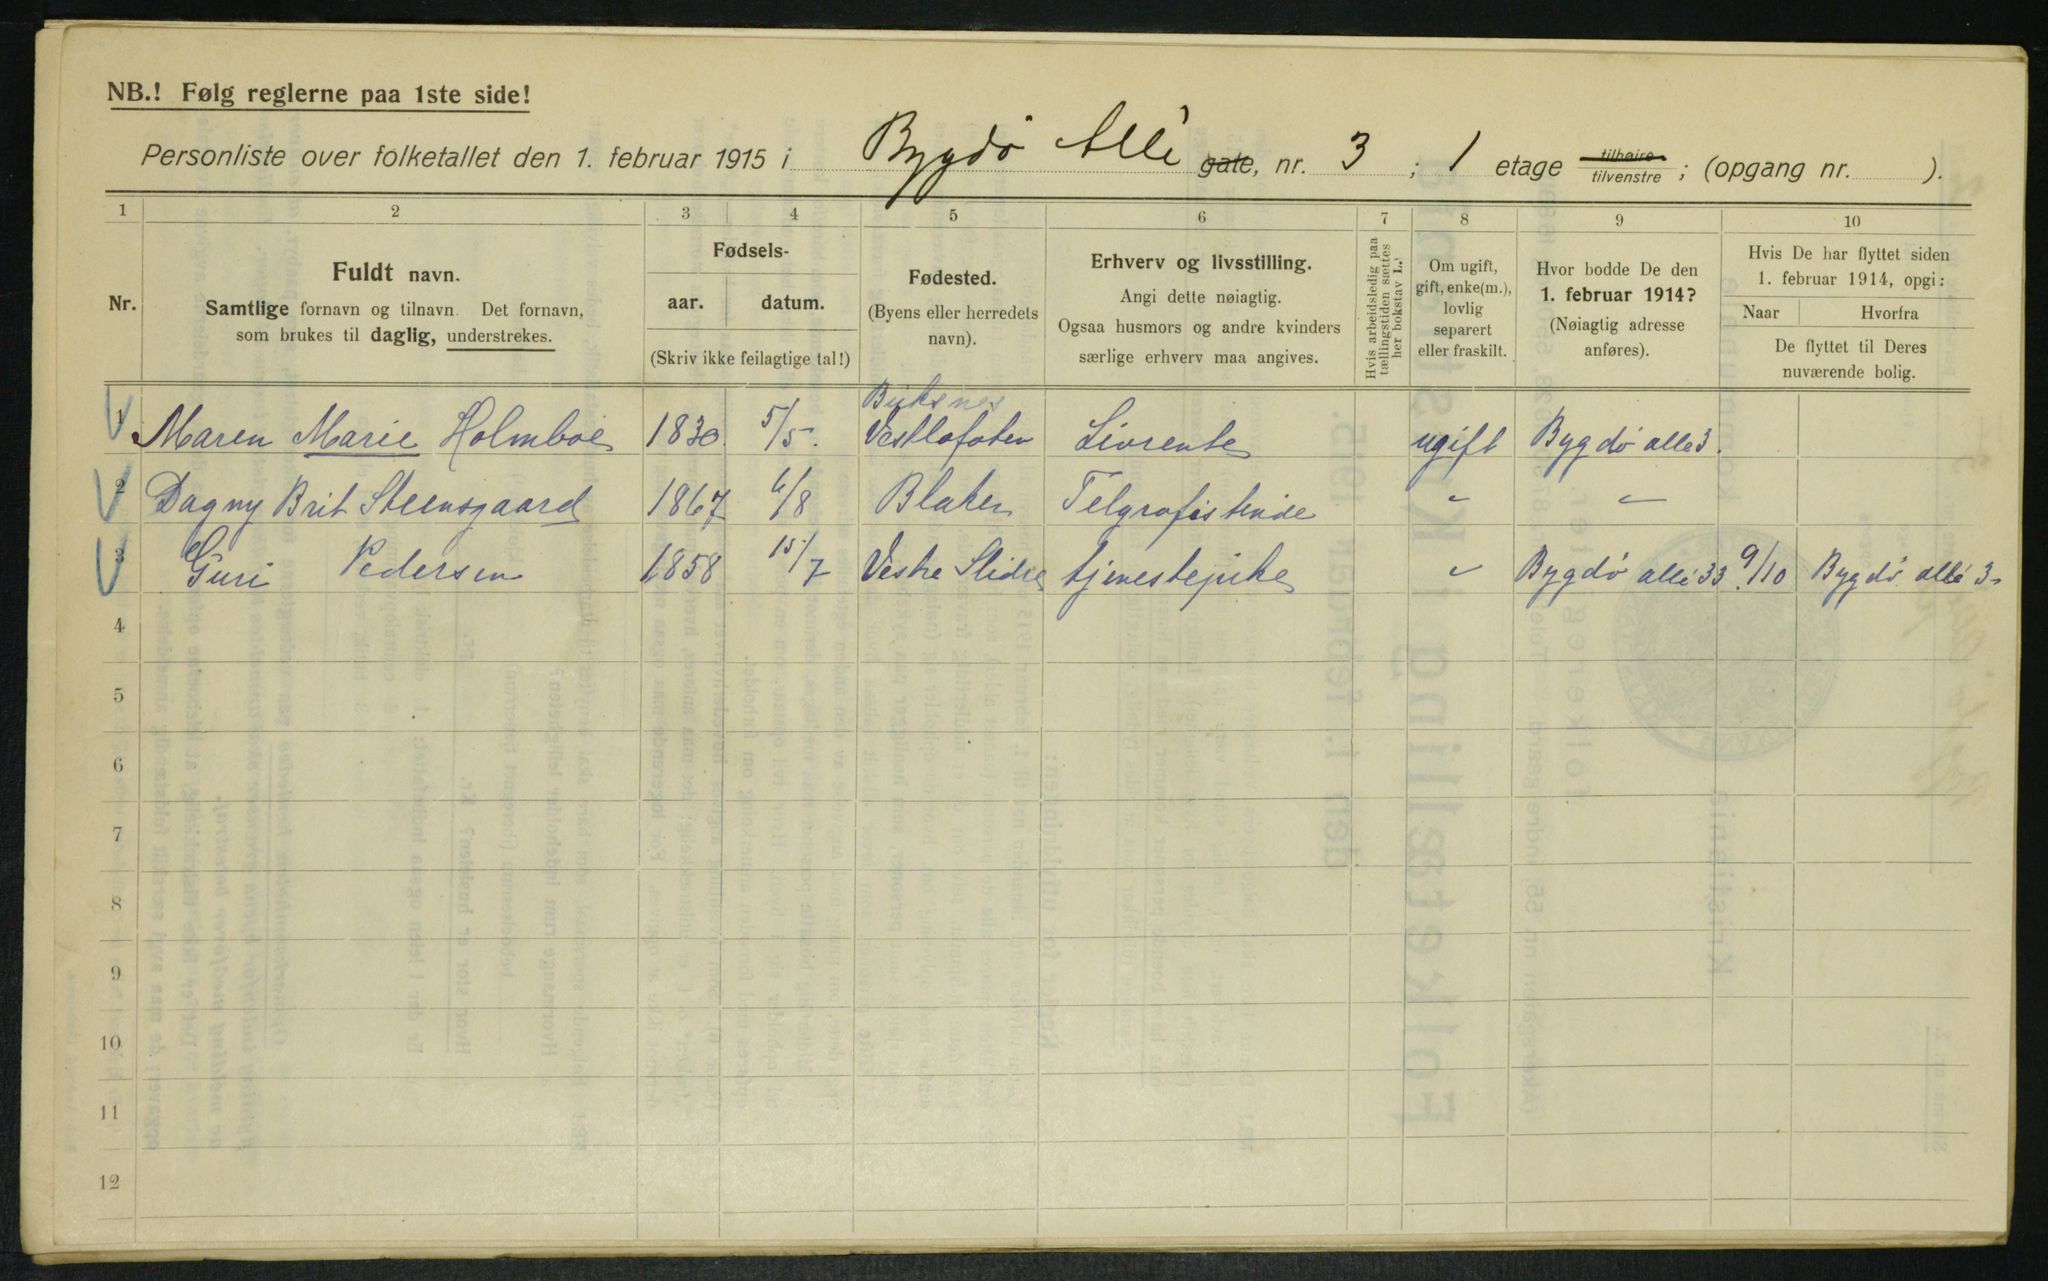 NB.! Følg reglerne paa 1ste side!
Personliste over folketallet den 1. februar 1915 i Bygdö Allé gate, nr. 3 ; 1 etage tilhøire tilvenstre ; (opgang nr. ).
1 2 3 4 5 6 7 8 9 10
Nr.
Fuldt navn.
Samtlige fornavn og tilnavn. Det fornavn,
som brukes til daglig, understrekes.
Fødsels-
aar. datum.
(Skriv ikke feilagtige tal!)
Fødested.
(Byens eller herredets
navn).
Erhverv og livsstilling.
Angi dette nøiagtig.
Ogsaa husmors og andre kvinders
særlige erhverv maa angives.
Hvis arbeidsledig paa
tællingstiden sættes
her bokstav L.
Om ugift,
gift, enke(m.),
lovlig
separert
eller fraskilt.
Hvor bodde De den
1. februar 1914?
(Nøiagtig adresse
anføres).
Hvis De har flyttet siden
1. februar 1914, opgi:
Naar Hvorfra
De flyttet til Deres
nuværende bolig.
Buksnes
1 Maren Marie Holmboe 1830 5/5. Vestlofoten Livrente ugift Bygdö alle 3.
2 Dagny Brit Steensgaard 1867 6/8 Blaker Telgrafistinde " "
3 Guri Pedersen 1858 15/7 Vestre Slidre tjenestepike " Bygdö allé 33 9/10 Bygdö allé 3
4
5
6
7
8
9
10
11
12